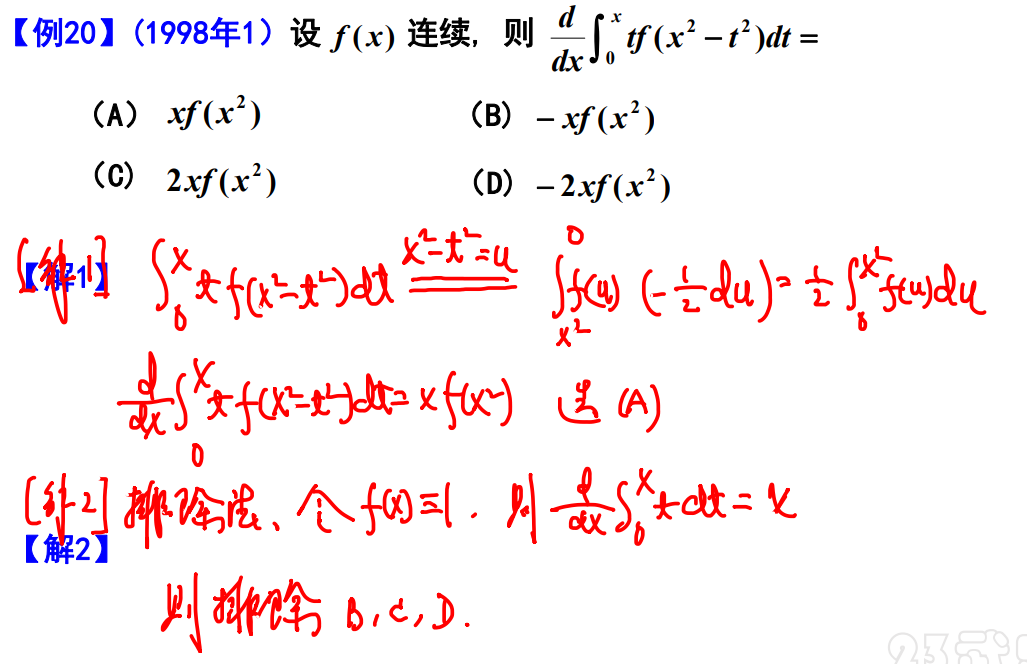 【例20】(1998年1) 设 f(x) 连续, 则 \frac{d}{dx}\int_0^x tf(x^2-t^2)dt =
(A) xf(x^2) (B) -xf(x^2)
(C) 2xf(x^2) (D) -2xf(x^2)
【解1】 [解1] \int_0^x t f(x^2-t^2)dt \xlongequal{x^2-t^2=u} \int_{x^2}^0 f(u)(-\frac{1}{2}du) = \frac{1}{2}\int_0^{x^2} f(u)du
\frac{d}{dx}\int_0^x t f(x^2-t^2)dt = x f(x^2) 选 (A)
[解2] 排除法、令 f(x)≡1. 则 \frac{d}{dx}\int_0^x t dt = x
【解2】
则排除 B, C, D.